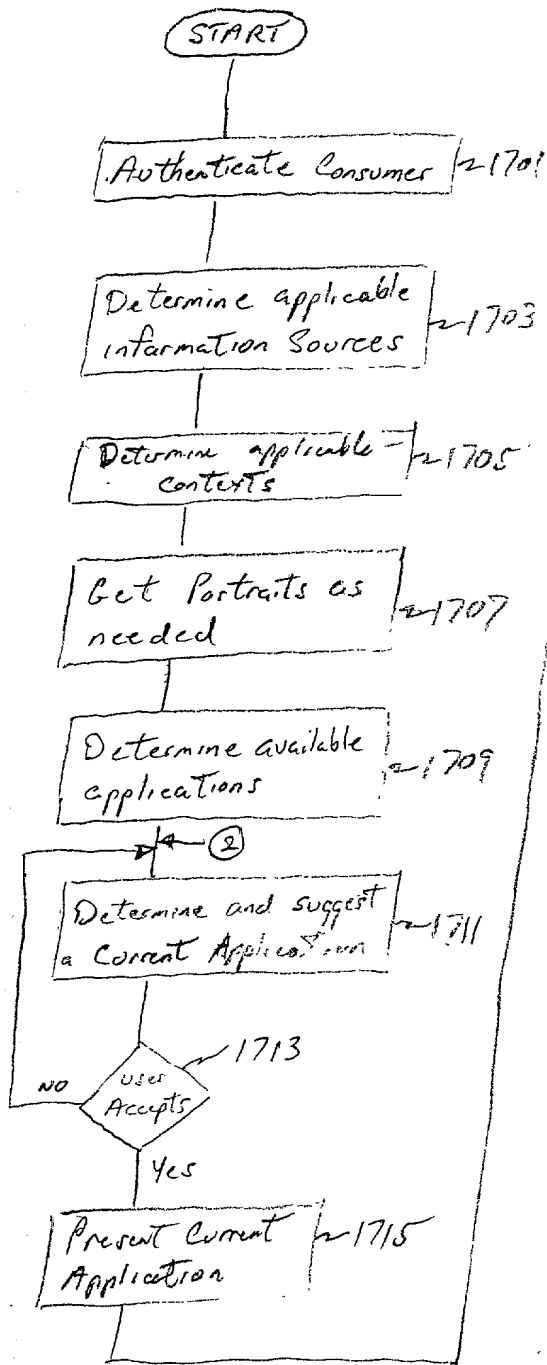 START
Authenticate Consumer 1701
Determine applicable
information Sources 1703
Determine applicable
contexts 1705
Get Portraits as
needed 1707
Determine available
applications 1709
2
Determine and suggest
a Current Application 1711
1713
NO
user
Accepts
Yes
Present Current
Application 1715